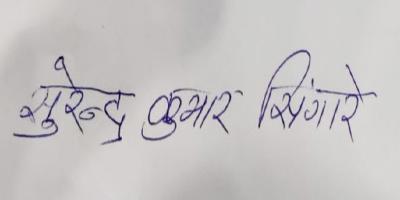 सुरेन्द्र कुमार सिंगारे